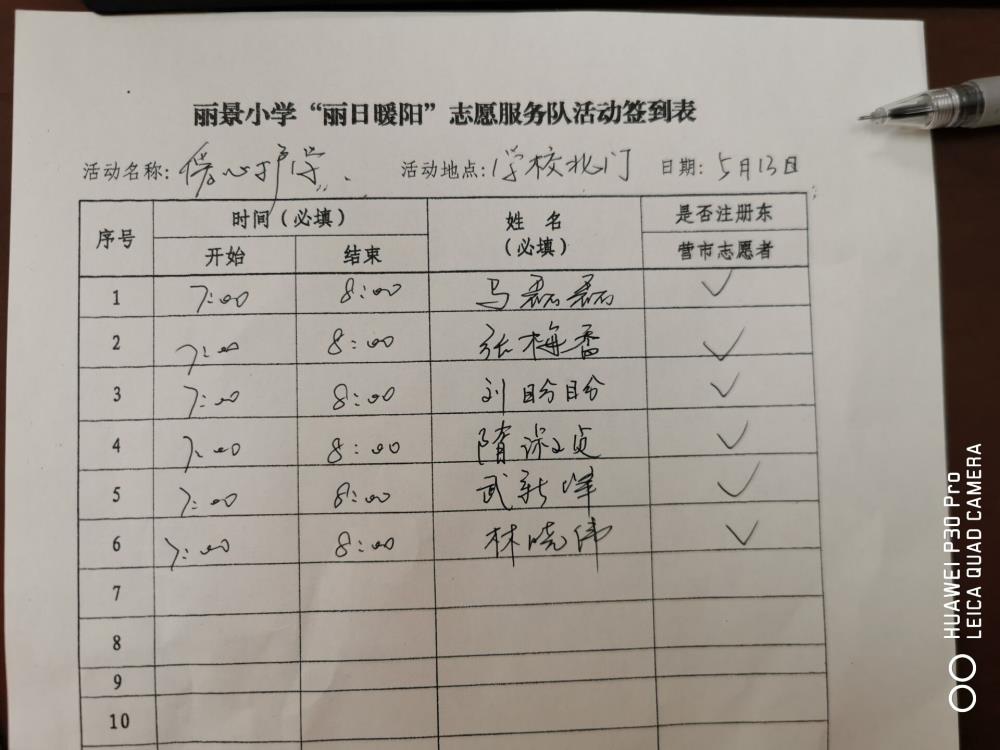 丽景小学“丽日暖阳”志愿服务队活动签到表
活动名称: 心护学 活动地点: 学校北门 日期: 5月13日
序号 时间(必填) 姓 名 (必填) 是否注册东营市志愿者
开始 结束
1 7:00 8:00 马磊磊 ✓
2 7:00 8:00 张梅香 ✓
3 7:00 8:00 刘盼盼 ✓
4 7:00 8:00 隋 贞 ✓
5 7:00 8:00 武新峰 ✓
6 7:00 8:00 林晓伟 ✓
7
8
9
10
HUAWEI P30 Pro
LEICA QUAD CAMERA